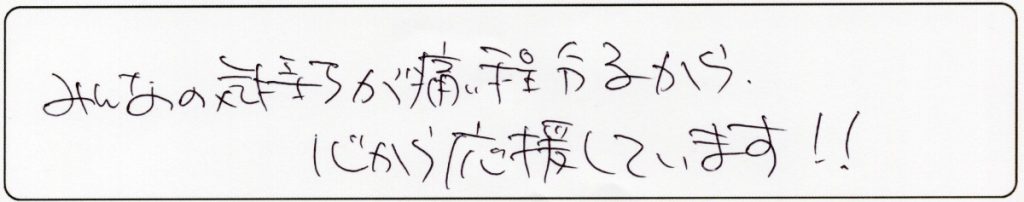 みんなの気持ちが痛い程分るから.
心から応援しています!!